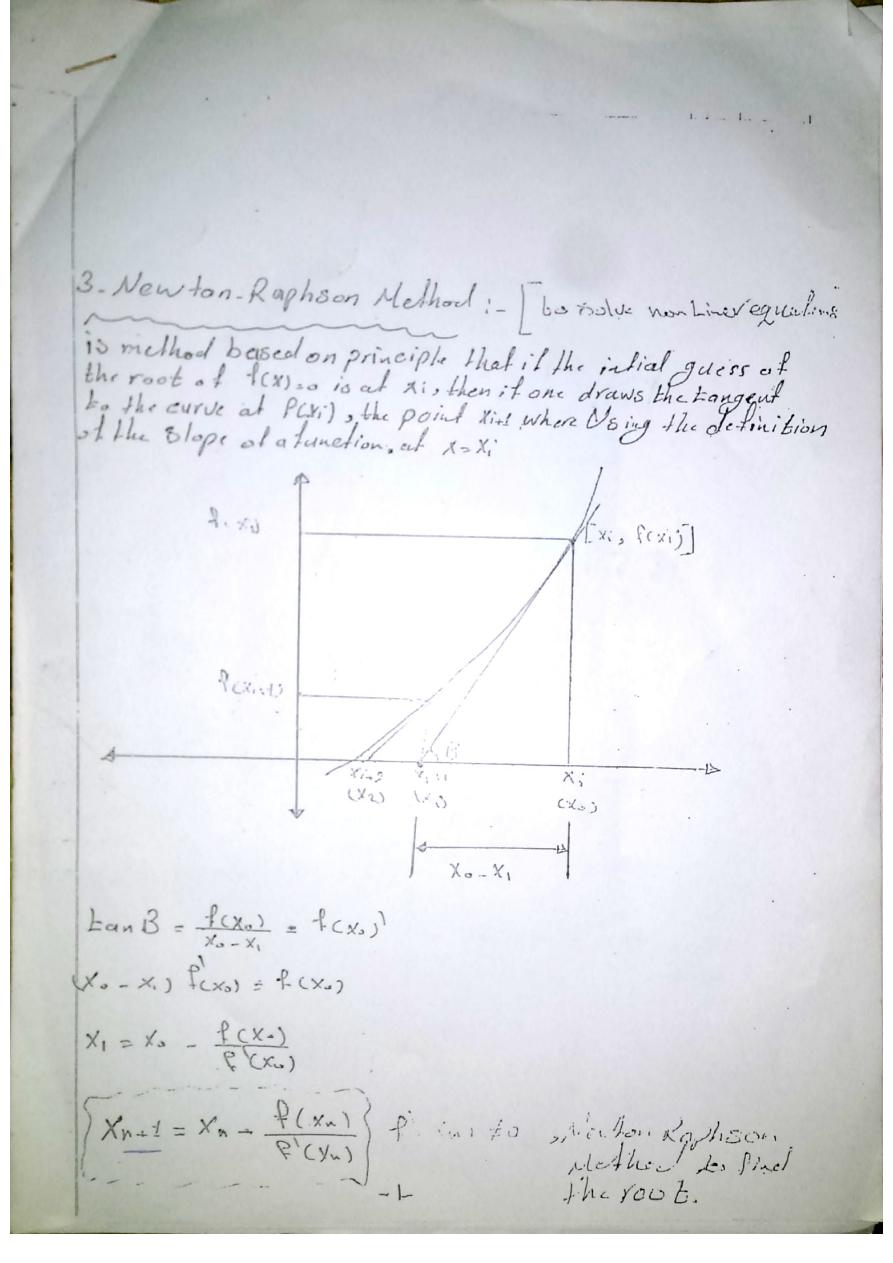 3- Newton-Raphson Method :- [ to solve non Liner equations
is method based on principle that if the intial guess of
the root of f(x)=0 is at xi, then if one draws the tangent
to the curve at f(xi), the point xi+1 where Using the definition
of the Slope of a function, at x=xi
[xi, f(xi)]
f(xi+1)
B
xi+2 xi+1 xi
(x2) (x1) (x0)
x0-x1
tan B = f(x0) / x0-x1 = f(x0)'
(x0 - x1) f'(x0) = f(x0)
x1 = x0 - f(x0) / f'(x0)
xn+1 = xn - f(xn) / f'(xn) ≠0 , Newton Raphson
Method to find
the root.